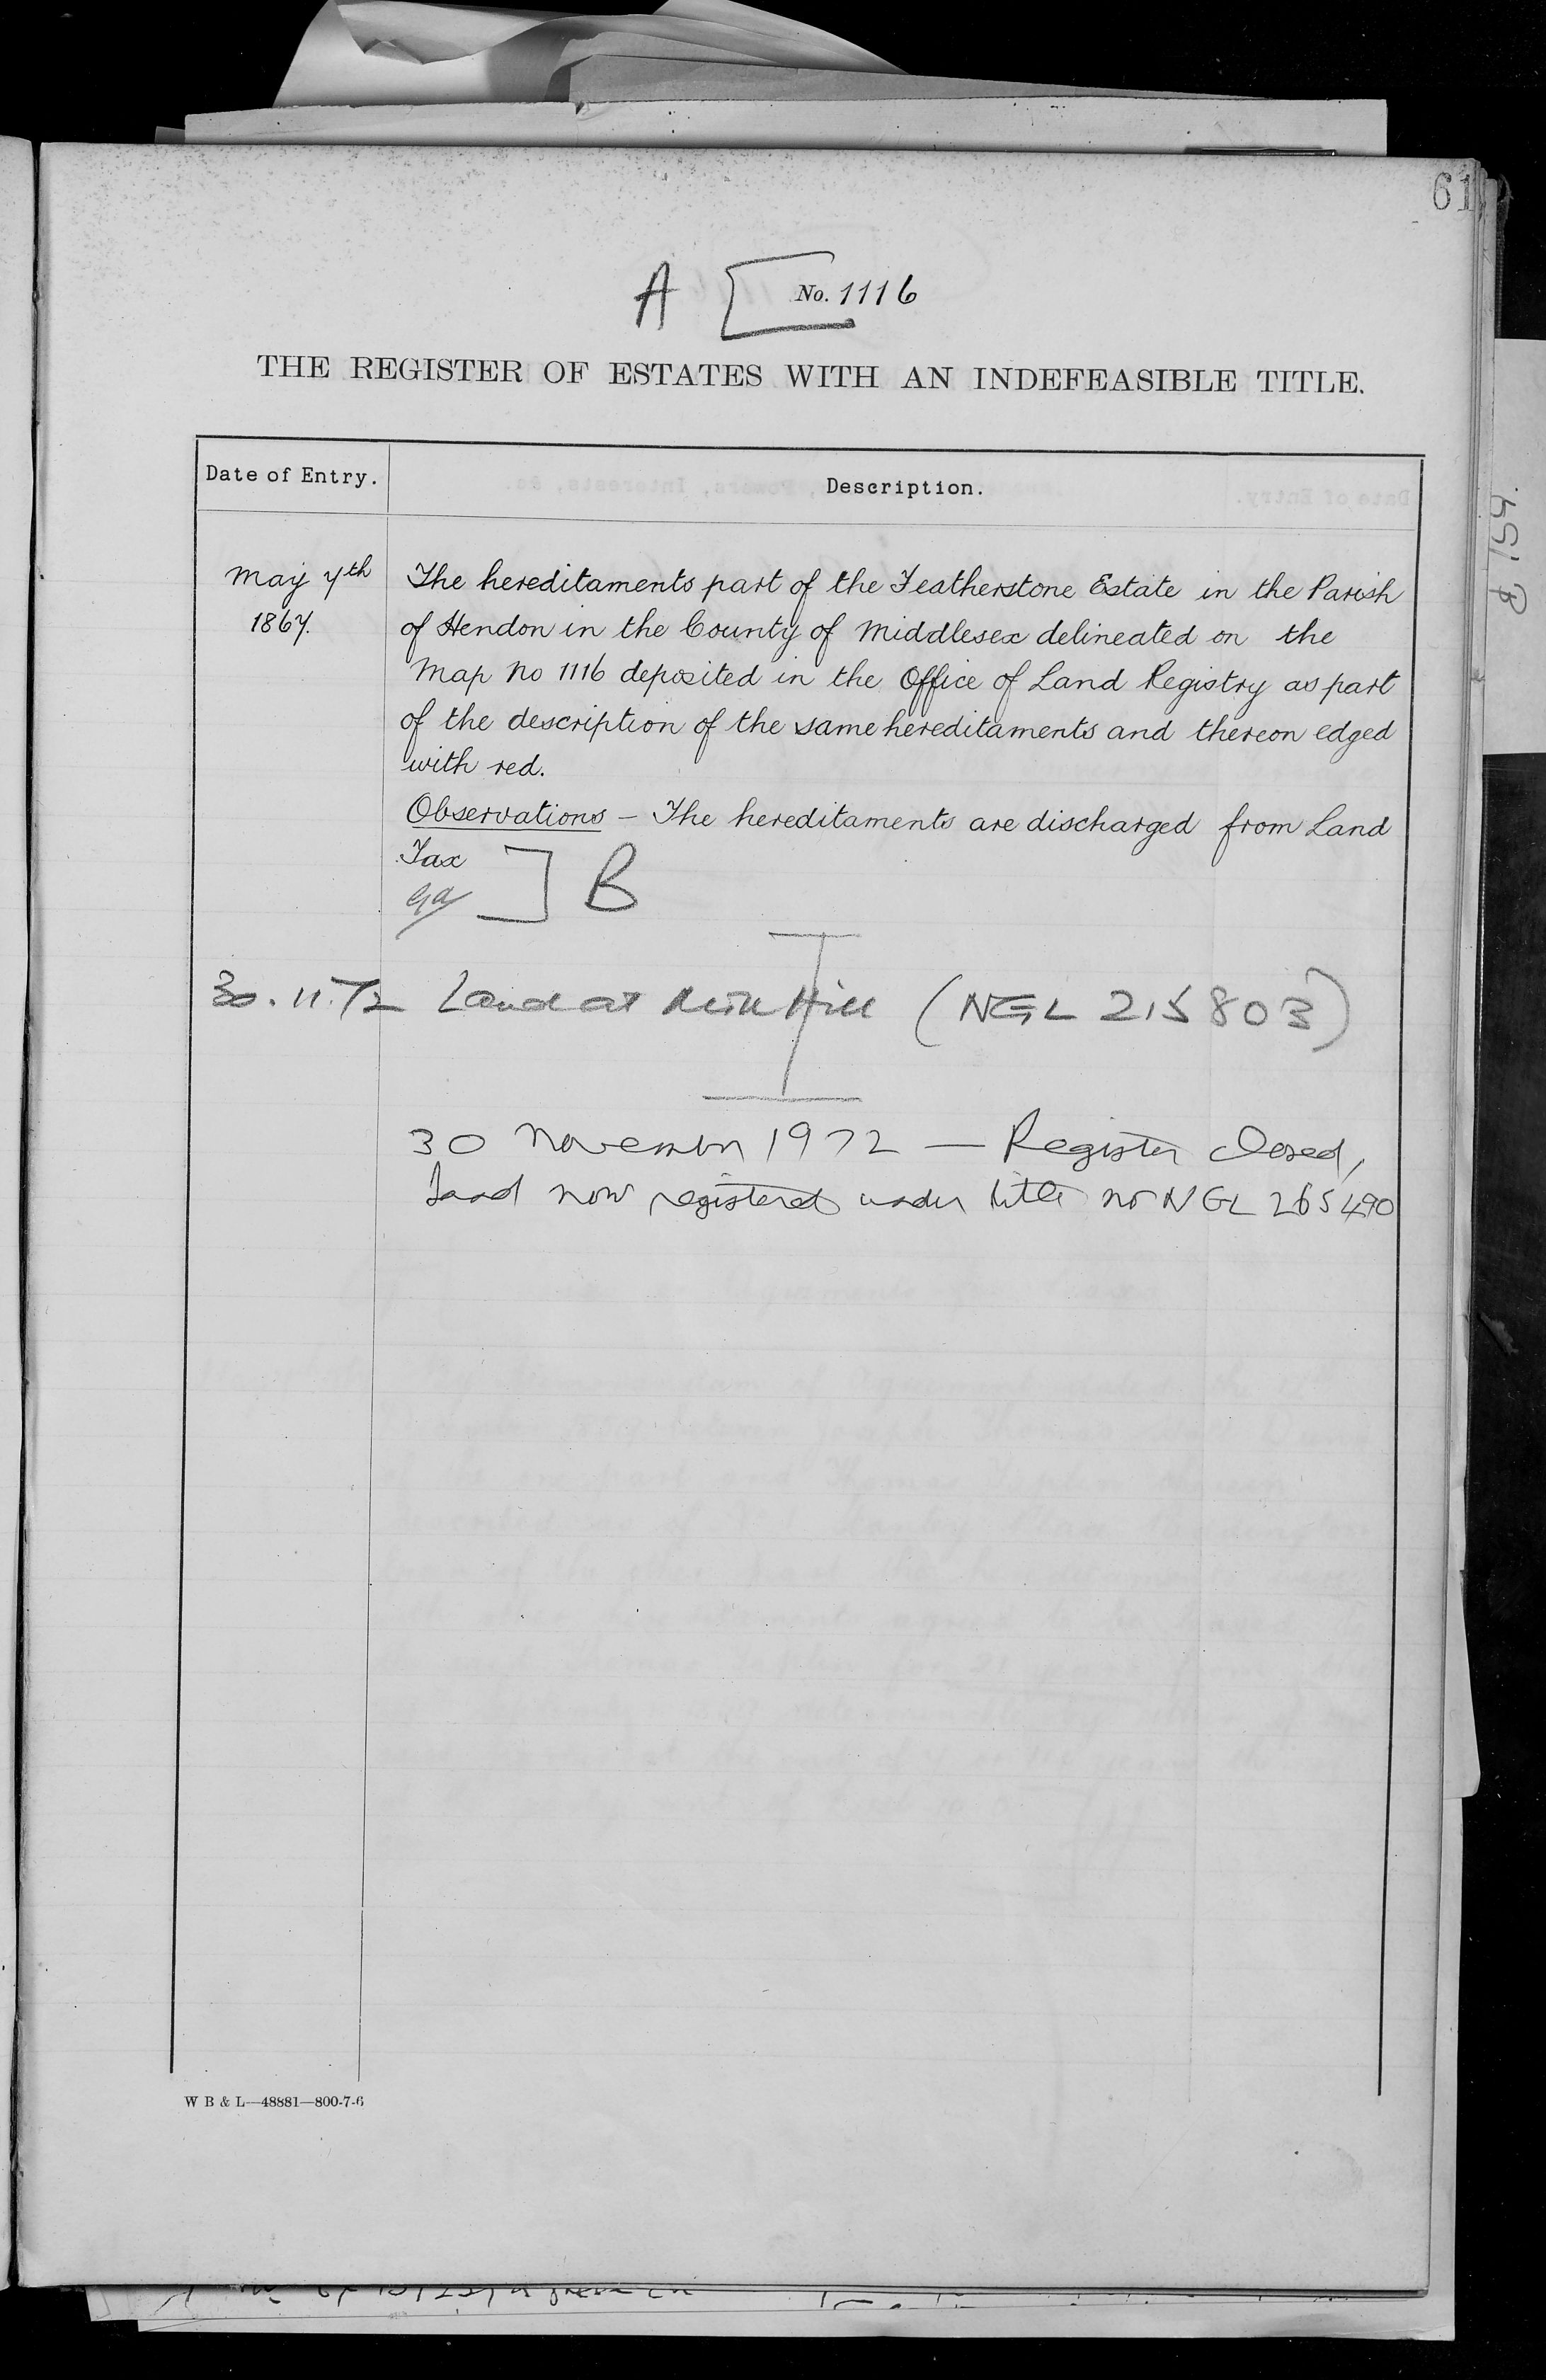 61
A [ No. 1116
THE REGISTER OF ESTATES WITH AN INDEFEASIBLE TITLE.
Date of Entry.
Description.
May 7th
1867.
The hereditaments part of the Featherstone Estate in the Parish
of Hendon in the County of Middlesex delineated on the
Map No 1116 deposited in the Office of Land Registry as part
of the description of the same hereditaments and thereon edged
with red.
Observations – The hereditaments are discharged from Land
Tax ] B
30.11.72 Land at Mill Hill (NGL 215803)
30 November 1972 — Register closed,
land now registered under title no NGL 265490
W B & L—48881—800-7-6
159.